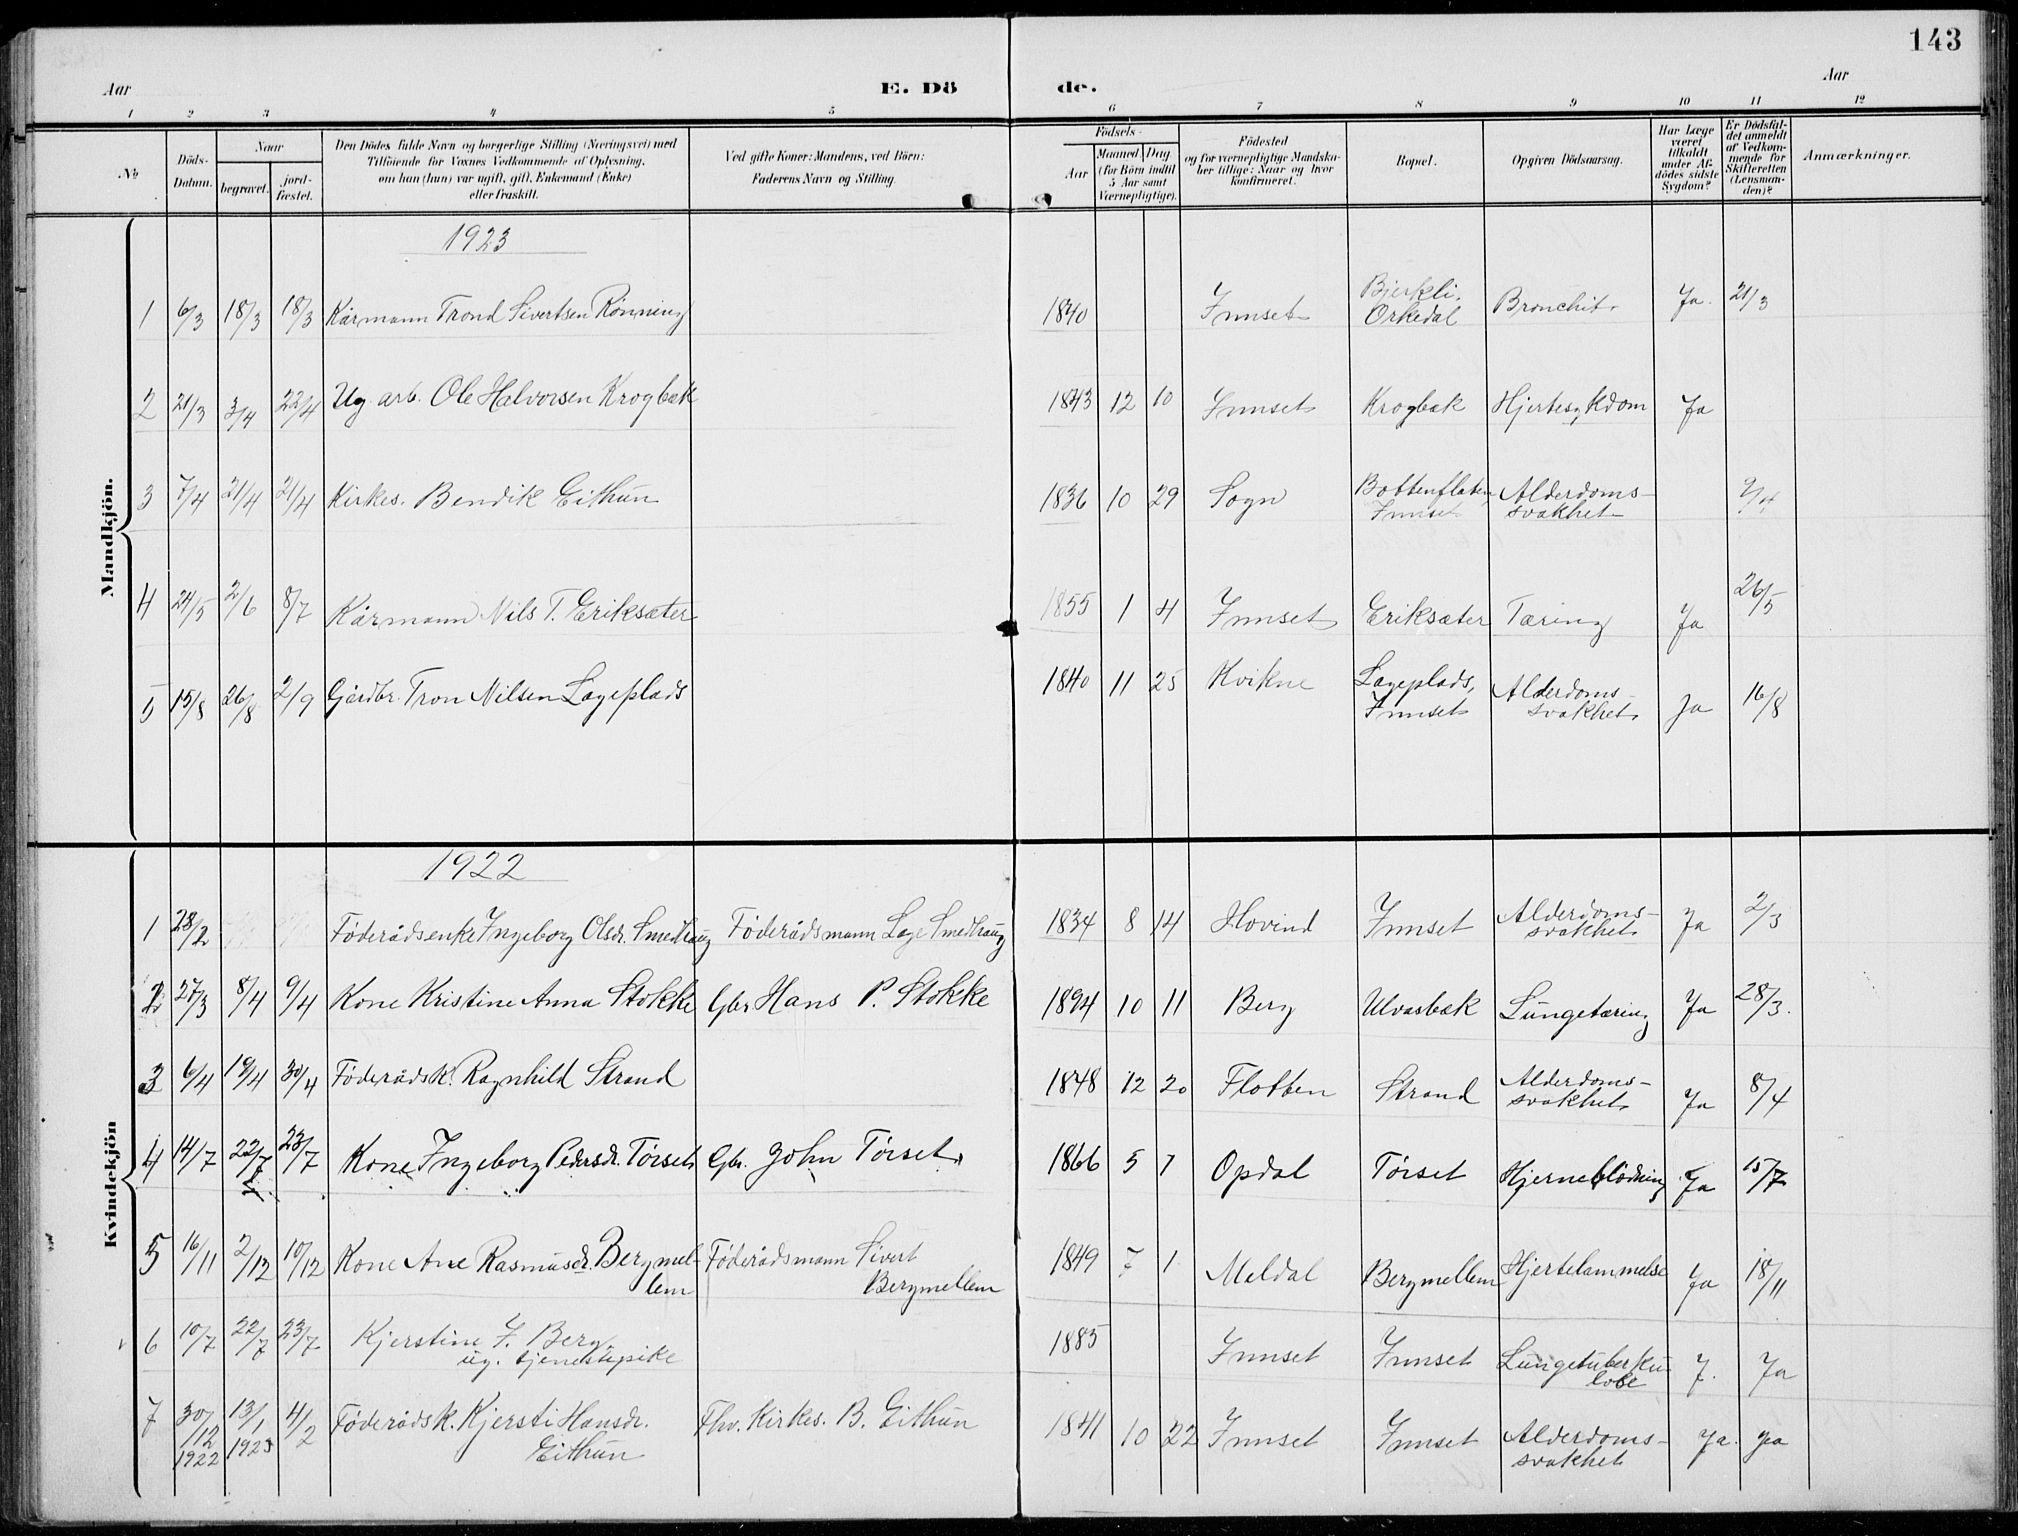 143
Aar
E. Dö
de.
Aar
1 2 3 4 5 6 7 8 9 10 11 12
No
Döds-Datum.
Naar
begravet.
jord-fæstet.
Den Dödes fulde Navn og borgerlige Stilling (Næringsvei) med
Tilföiende for Voxnes Vedkommende af Oplysning,
om han (hun) var ugift, gift, Enkemand (Enke)
eller fraskilt.
Ved gifte Koner: Mandens, ved Börn:
Faderens Navn og Stilling.
Födsels-
Aar
Maaned Dag
(for Börn indtil
5 Aar samt
Værnepligtige).
Födested
og for værnepligtige Mandska-
ber tillige: Naar og hvor
konfirmeret.
Bopæl.
Opgiven Dödsaarsag.
Har Læge
været
tilkaldt
under Af-
dödes sidste
Sygdom?
Er Dödsfal-
det anmeldt
af Vedkom-
mende for
Skifteretten
(Lensman-
den)?
Anmærkninger.
Mandkjön.
1923
1 6/3 18/3 18/3 Kårmann Trond Sivertsen Rönning 1840 Innset Bjerkli, Orkedal Bronchit. Ja. 21/3
2 21/3 3/4 22/4 Ug. arb. Ole Halvorsen Krogbæk 1843 12 10 Innset Krogbæk Hjertesykdom Ja
3 7/4 21/4 21/4 Kirkes. Bendik Eithun 1836 10 29 Sogn Bottenflaten, Innset Alderdoms-svakhet 9/4
4 24/5 2/6 8/7 Kårmann Nils T. Eriksæter 1855 1 4 Innset Eriksæter Tæring Ja 26/5
5 15/8 26/8 2/9 Gårdbr. Tron Nilsen Lageplads 1840 11 25 Kvikne Lageplads, Innset Alderdoms-svakhet Ja 16/8
Kvindekjön
1922
1 28/2 Föderådsenke Ingeborg Olsdr. Smedhaug Föderådsmann Lage Smedhaug 1834 8 14 Hovind Innset Alderdoms-svakhet Ja 2/3
2 27/3 8/4 9/4 Kone Kristine Anna Stokke Gbr. Hans P. Stokke 1894 10 11 Berg Ulvasbæk Lungetæring Ja 28/3.
3 6/4 19/4 30/4 Föderådsk. Ragnhild Strand 1848 12 20 Flotten Strand Alderdoms-svakhet Ja 8/4
4 14/7 22/7 23/7 Kone Ingeborg Pedersdr. Törset Gbr. John Törset. 1866 5 7 Opdal Törset Hjerneblödning Ja 15/7
5 16/11 2/12 10/12 Kone Ane Rasmusdr. Bergmel-lem Föderådsmann Sivert Bergmellem 1849 7 1 Meldal Bergmellem Hjertelammelse Ja 18/11
6 10/7 22/7 23/7 Kjerstine I. Berg, ug. tjenestepike 1885 Innset Innset Lungetuberku-lose J. Ja
7 30/12 1922 13/1 1923 4/2 Föderådsk. Kjersti Hansdr. Eithun Fhv. Kirkes. B. Eithun 1841 10 22 Innset Innset Alderdoms-svakhet Ja. Ja